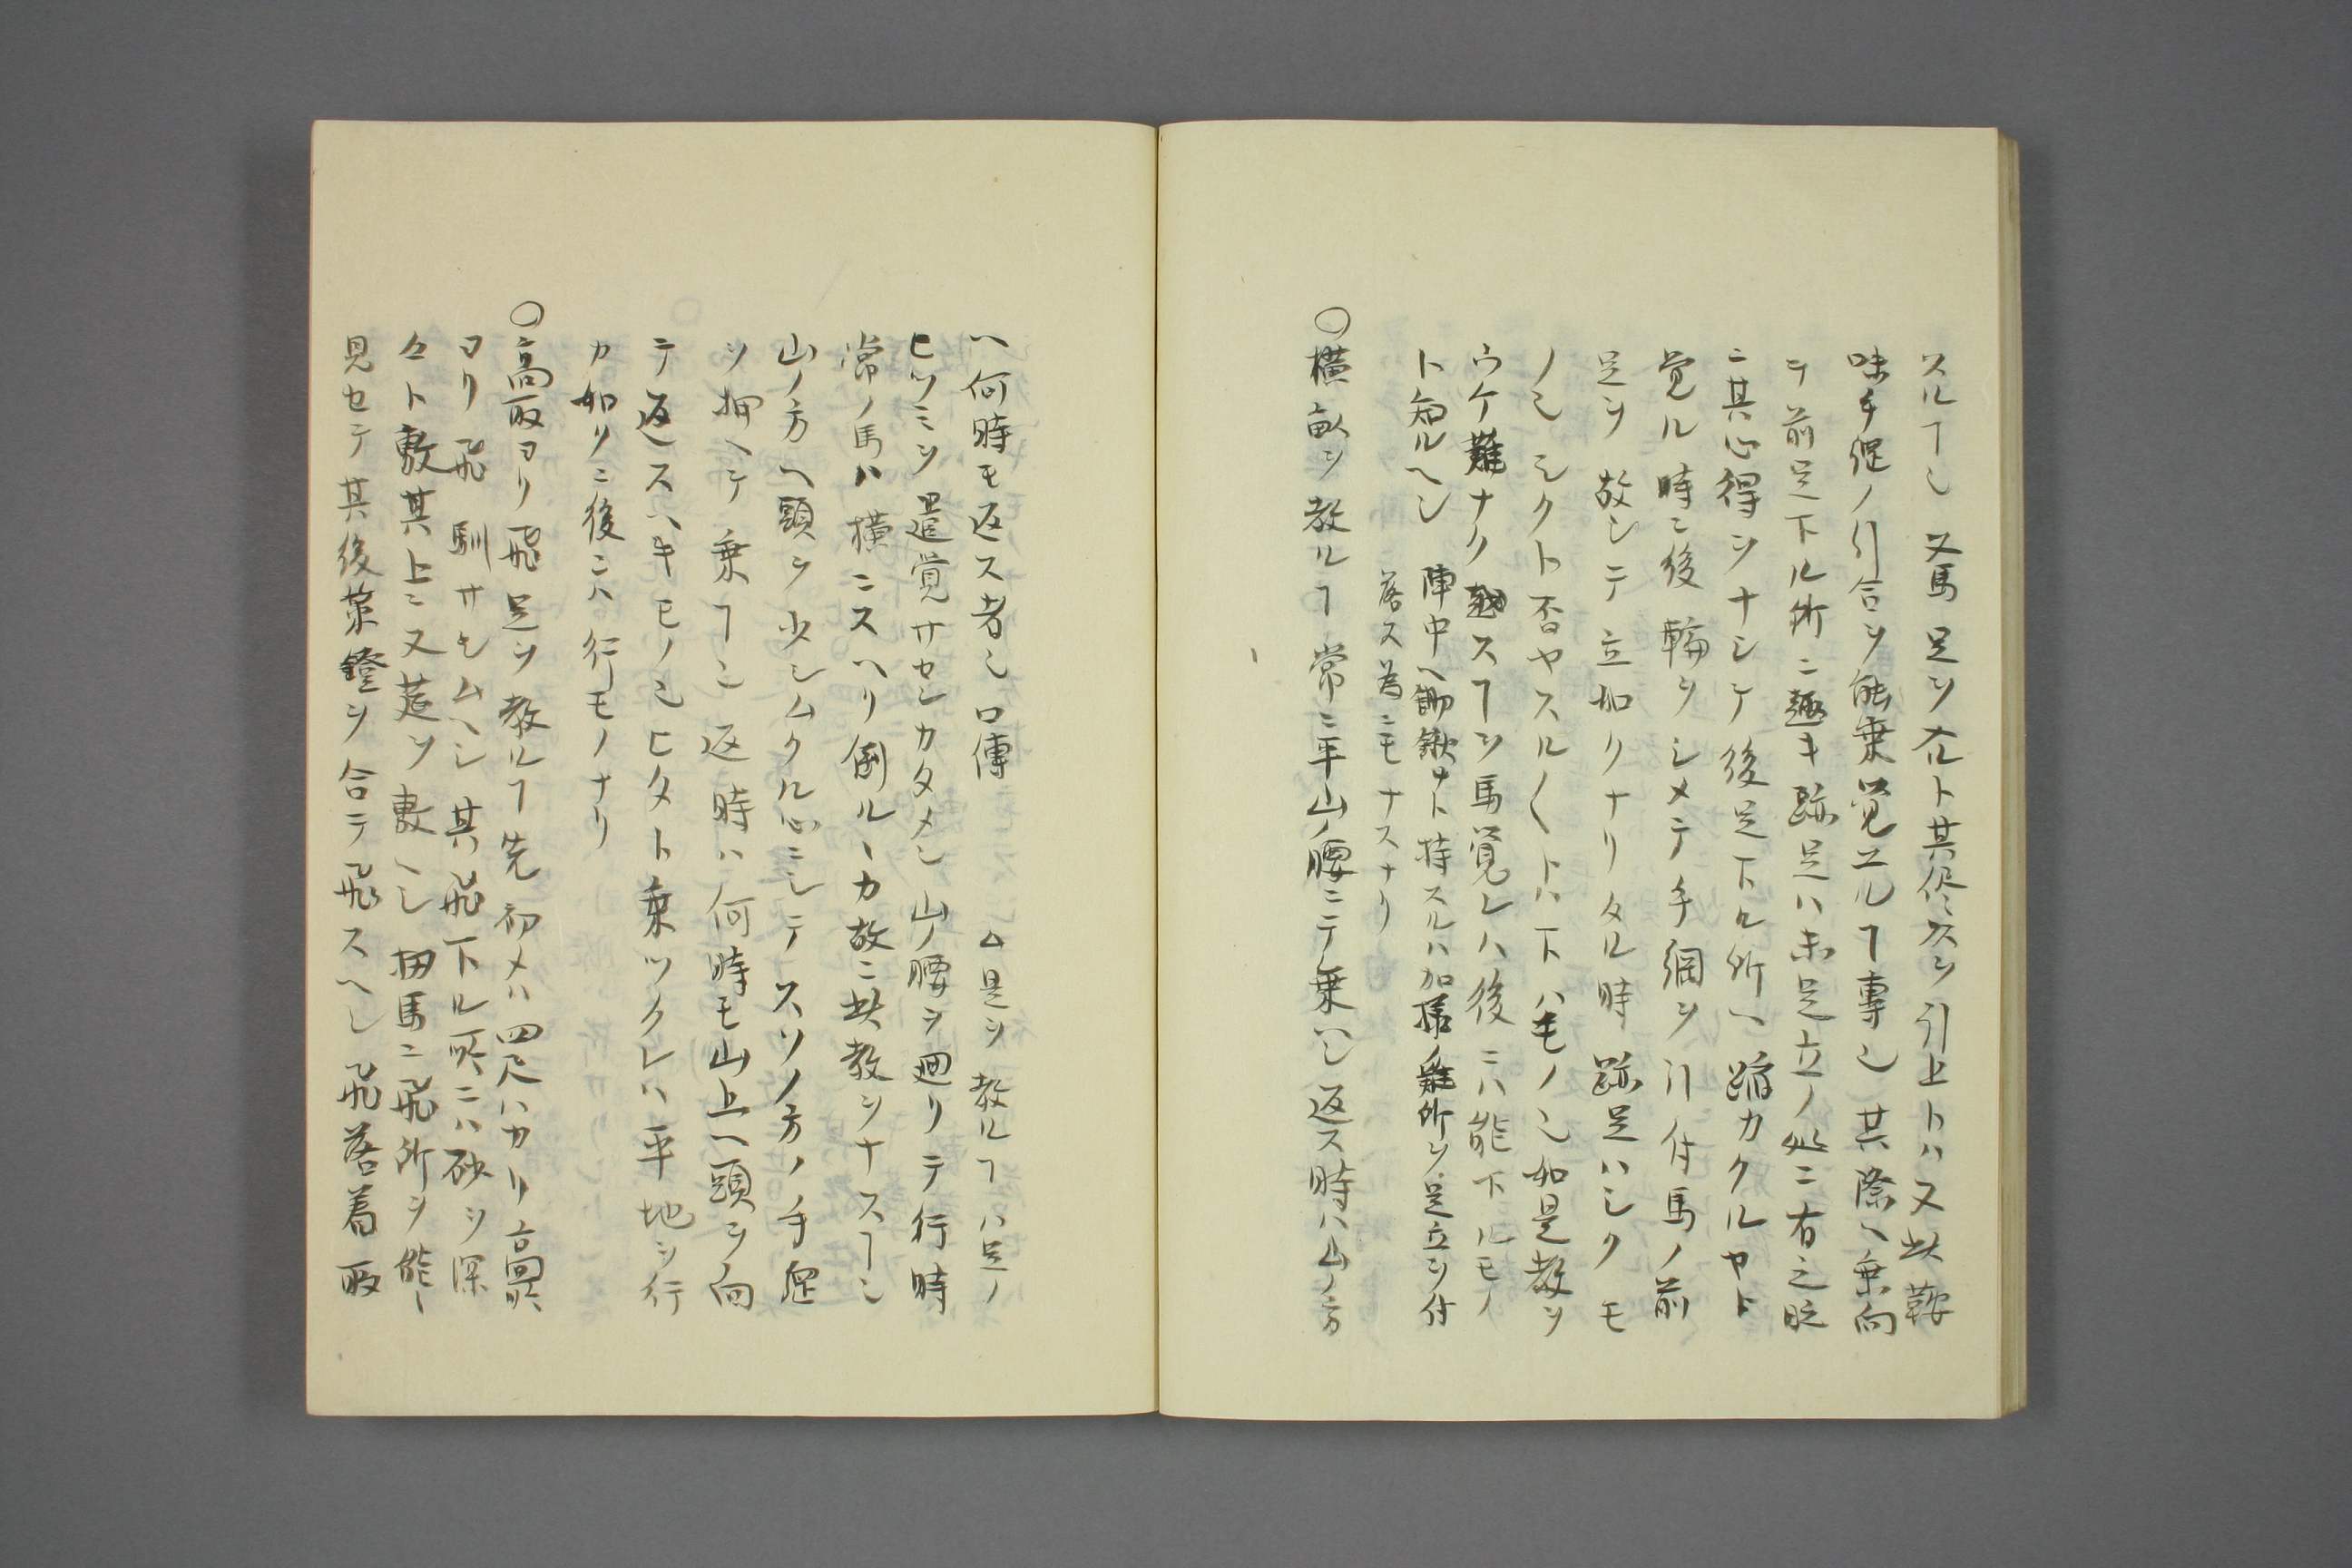 スルヿ也 又馬足ヲ折ルト其侭クスシ引上トハ又此鞍
味手綱ノ引合ヲ能乗覚ユルヿ専也 其際ヘ乗向
テ前足下ル所ニ趣キ跡足ハ未足立ノ処ニ有之時
ニ其心得ヲナシテ後足下ル所ヘ蹈カクルヤト
覚ル時ニ後輪ヲシメテ手綱ヲ引付馬ノ前
足ヲ放シテ立如クナリタル時跡足ハシクモ
ノ也シクト否ヤスル〱トハ下ハモノ也如是教ヲ
ウケ難ナク越スヿヲ馬覚レハ後ニハ能下ルモノ
ト知ルヘシ 陣中ヘ鋤鍬ナト持スルハ加様ノ難所ヲ足立ヲ付
落ス為ニモナスナリ
〇横畝ヲ教ルヿ常ニ平山ノ腰ニテ乗ヘシ返ス時ハ山ノ方
ヘ何時モ返ス者也口傳 ム是ヲ教ルヿハ足ノ
ヒツミヲ遣覚サセンカタメ也山ノ腰ヲ廻リテ行時
常ノ馬ハ横ニスヘリ倒ルヽカ故ニ此教ヲナスヿ也
山ノ方ヘ頭ヲ少シムクル心ニシテスソノ方ノ手綱
ヲ押ヘテ乗ヿ也返時ハ何時モ山上ヘ頭ヲ向
テ返スヘキモノ也ヒタト乗ツクレハ平地ヲ行
カ如クニ後ニハ行モノナリ
〇高取ヨリ飛足ヲ教ルヿ先初メハ四尺ハカリ高所
ヨリ飛馴サセムヘシ其飛下ル所ニハ砂ヲ深
々ト敷其上ニ又莚ヲ敷ヘシ扨馬ニ飛所ヲ能々
見セテ其後策鐙ヲ合テ飛スヘシ飛落着取